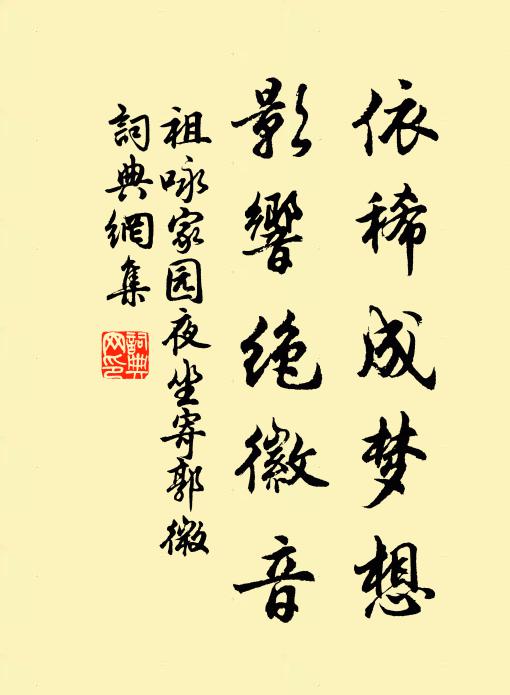 依稀成梦想
影響绝徽音
祖咏家园夜坐寄郭微
詞典網集
詞典网印